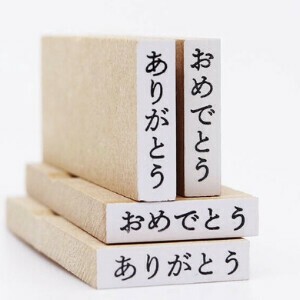 ありがとう
おめでとう
おめでとう
ありがとう